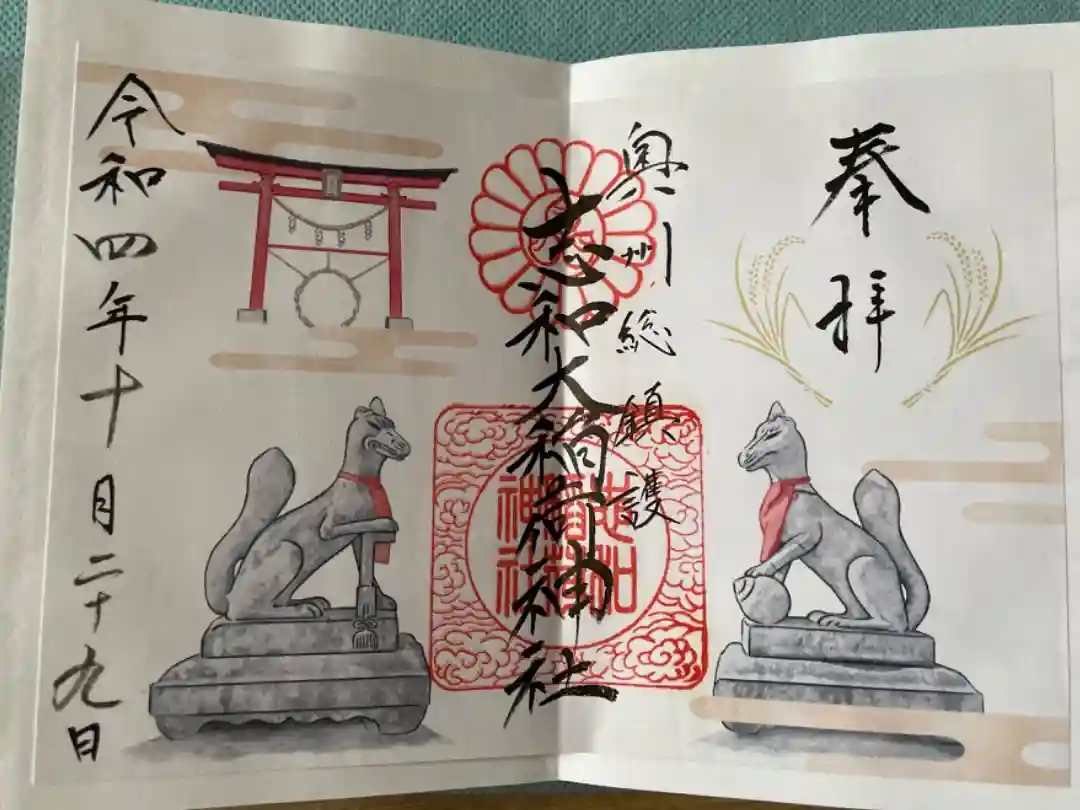 奉拝
奥州総鎮護
志和大稲荷神社
志和
稲荷
神社
令和四年十月二十九日